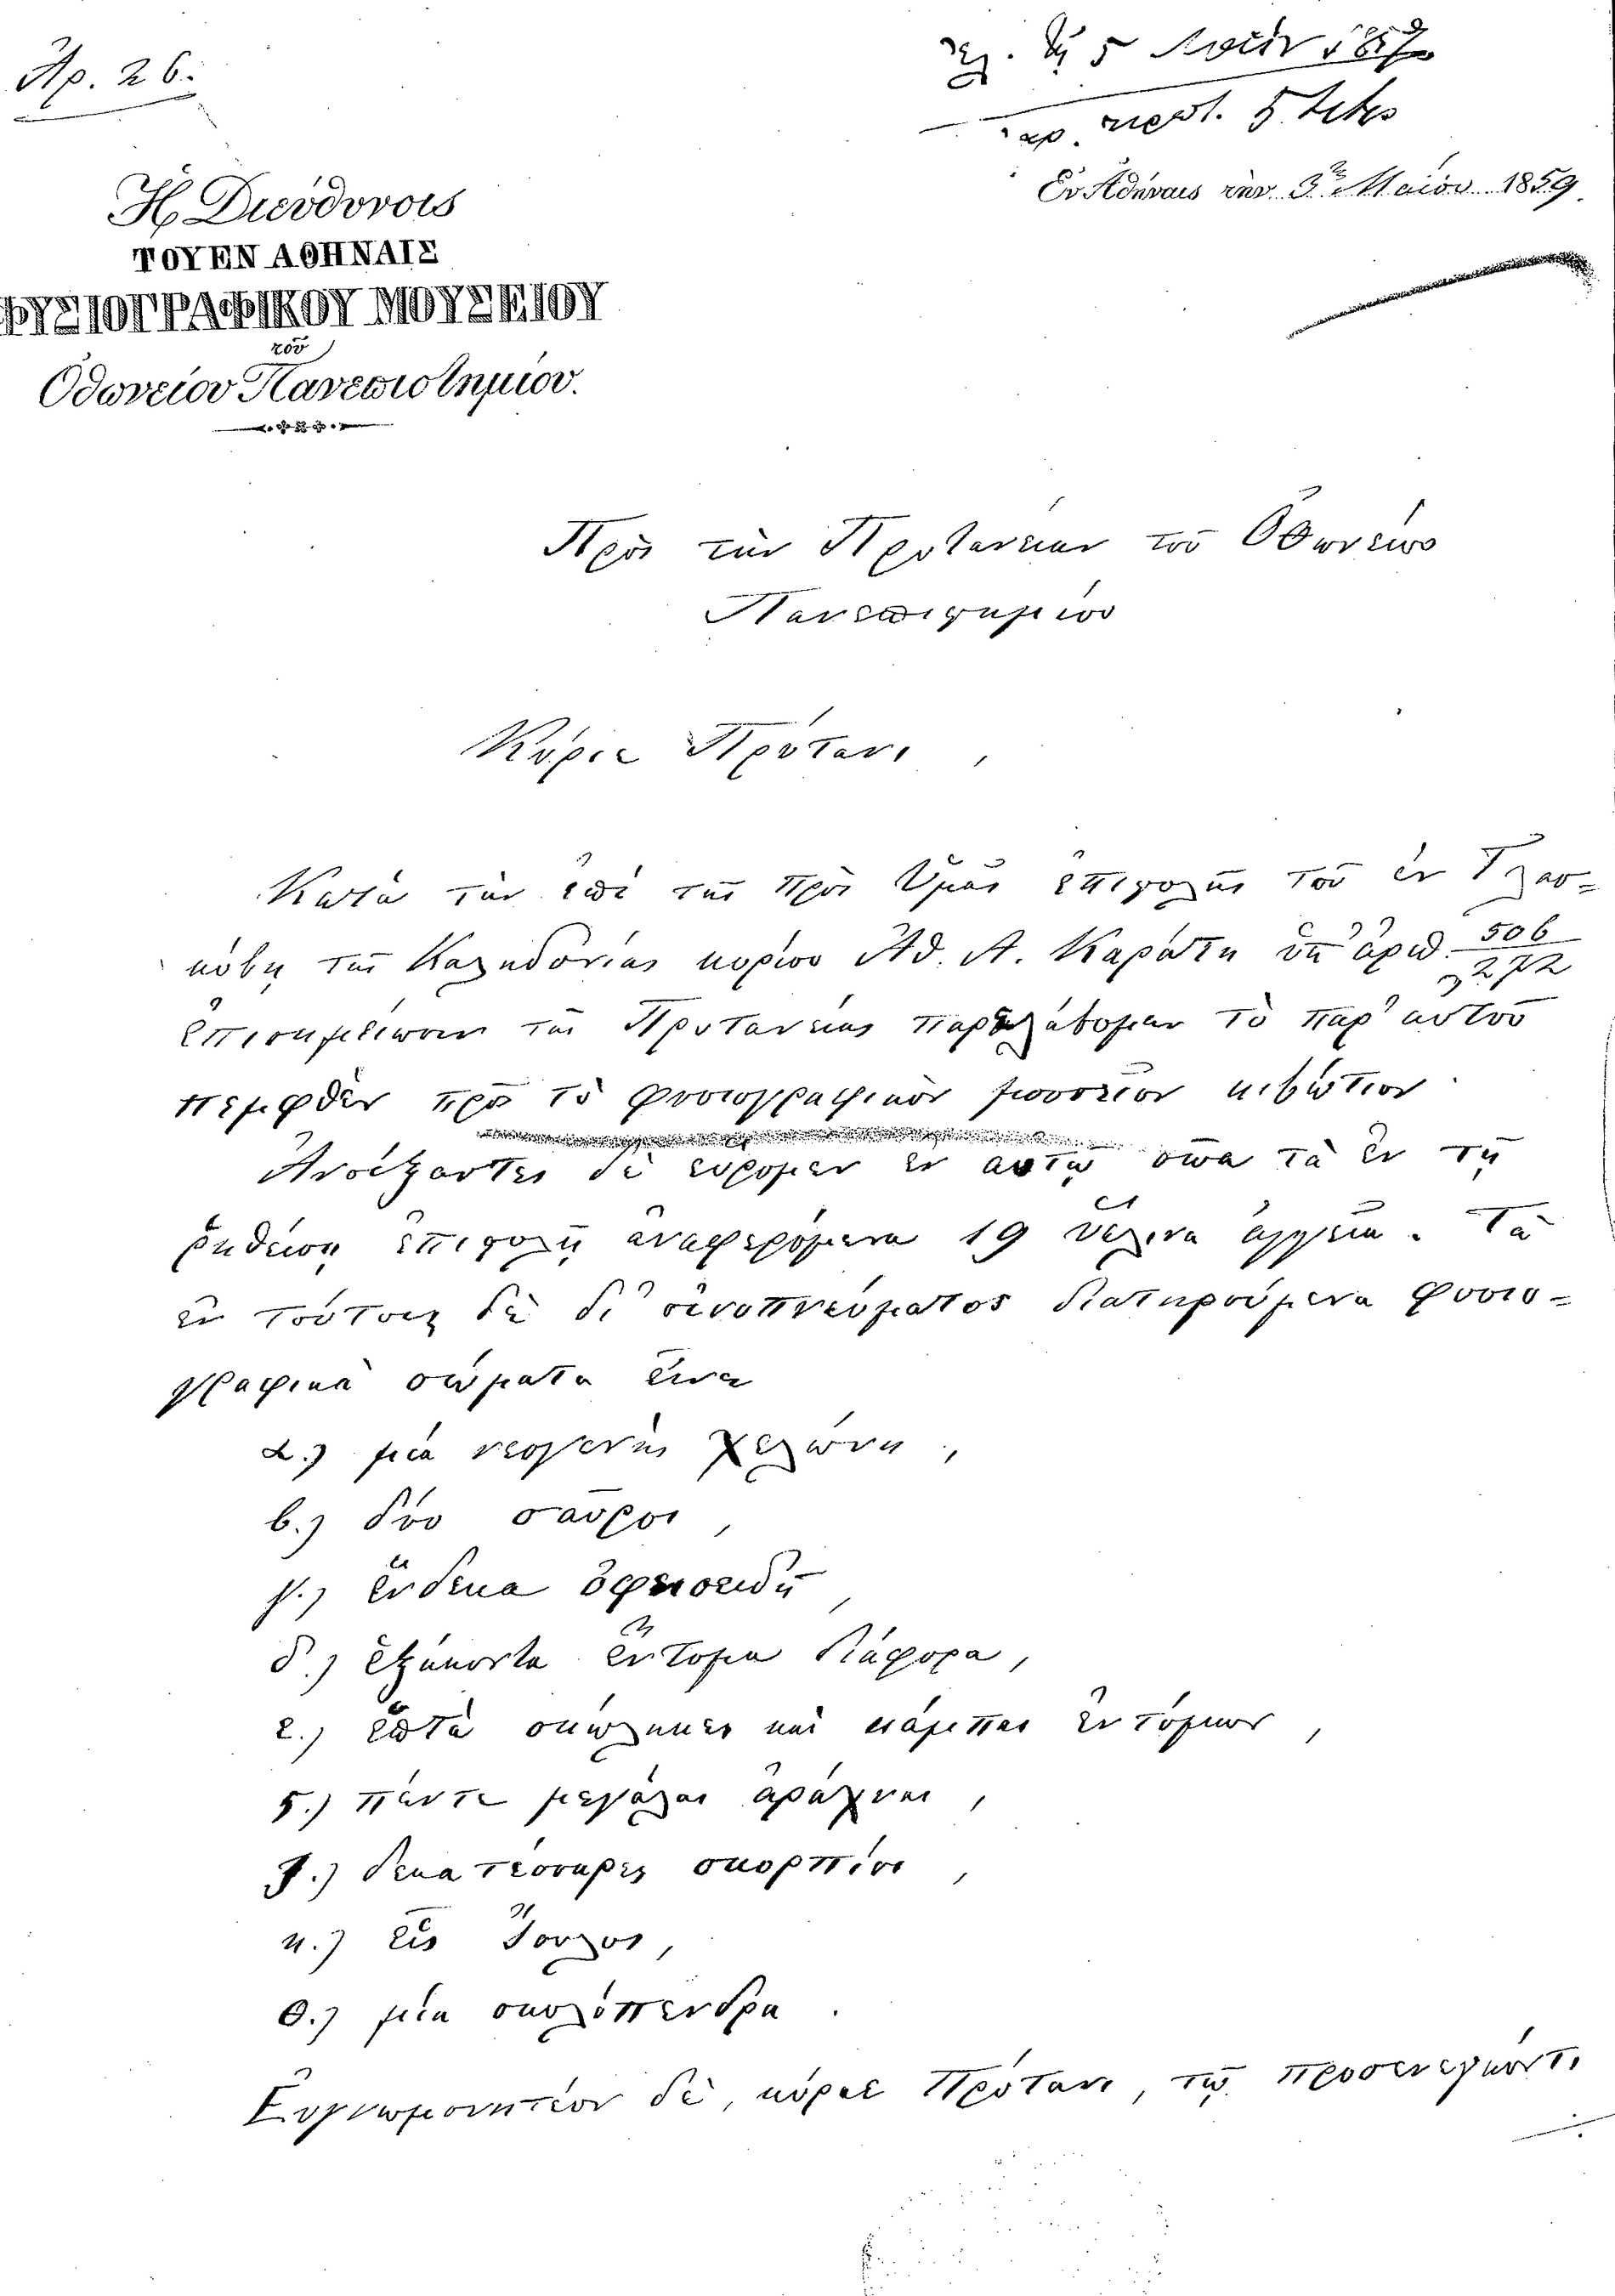 Ἀρ. 26.
5 1859
Ἐν Ἀθήναις τὴν 3 Μαΐου 1859
Ἡ Διεύθυνσις
ΤΟΥ ΕΝ ΑΘΗΝΑΙΣ
ΦΥΣΙΟΓΡΑΦΙΚΟΥ ΜΟΥΣΕΙΟΥ
τοῦ
Ὀθωνείου Πανεπιστημίου.
Πρὸς τὴν Πρυτανείαν τοῦ Ὀθωνείου
Πανεπιστημίου
Κύριε Πρύτανι,
Κατὰ τὴν ἐπὶ τῆς πρὸς Ὑμᾶς ἐπιστολῆς τοῦ ἐν
τῆς Καληδονίας κυρίου Ἀδ. Α. Καράτη ὑπ' ἀριθ. 506
272
ἐπισημείωσιν τῆς Πρυτανείας παρελάβομεν τὸ παρ' αὐτοῦ
πεμφθὲν πρὸς τὸ φυσιογραφικὸν μουσεῖον κιβώτιον
Ἀνοίξαντες δὲ εὕρομεν ἐν αὐτῷ σῶα τὰ ἐν τῇ
ῥηθείσῃ ἐπιστολῇ ἀναφερόμενα 19 ὑέλινα ἀγγεῖα. Τὰ
ἐν τούτοις δὲ δι' οἰνοπνεύματος διατηρούμενα φυσιο-
γραφικὰ σώματα εἶναι
α.) μία νεογενὴς χελώνη,
β.) δύο σαῦροι,
γ.) ἕνδεκα ὀφιοειδῆ,
δ.) ἑξήκοντα ἔντομα διάφορα,
ε.) ἑπτὰ σκώληκες καὶ κάμπαι ἐντόμων,
ς.) πέντε μεγάλαι ἀράχναι,
ζ.) δεκατέσσαρες σκορπίοι,
η.) εἷς ἴουλος,
θ.) μία σκολόπενδρα.
Εὐγνωμονητέον δὲ, κύριε Πρύτανι, τῷ προσενεγκόντι